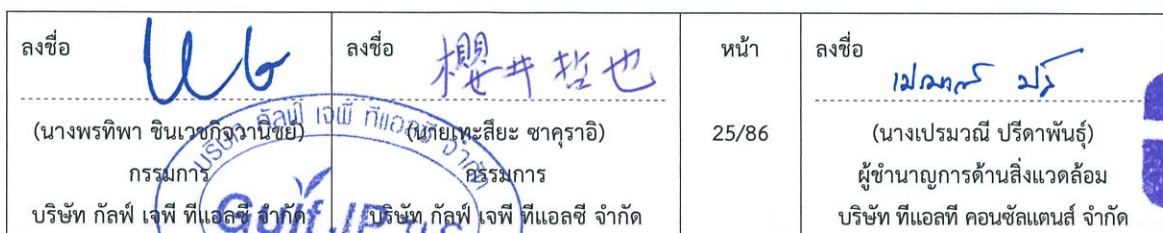 ลงชื่อ
(นางพรทิพา ชินเวชกิจวานิชย์)
กรรมการ
บริษัท กัลฟ์ เจพี ทีแอลซี จำกัด
ลงชื่อ
櫻井哲也
(นายเทะสึยะ ซาคุราอิ)
กรรมการ
บริษัท กัลฟ์ เจพี ทีแอลซี จำกัด
หน้า
25/86
ลงชื่อ
(นางเปรมวณี ปรีดาพันธุ์)
ผู้ชำนาญการด้านสิ่งแวดล้อม
บริษัท ทีแอลที คอนซัลแตนส์ จำกัด
บริษัท กัลฟ์ เจพี ทีแอลซี จำกัด
Gulf JP TLC